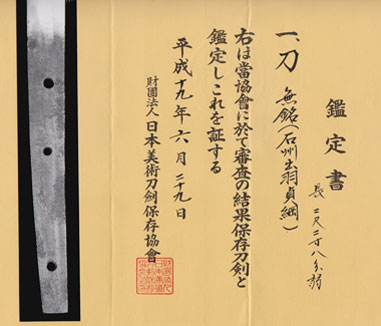 鑑定書
一、刀 無銘(石州出羽貞綱)
長二尺二寸八分弱
右は當協會に於て審査の結果保存刀剣と
鑑定しこれを証する
平成十九年六月二十九日
財團法人日本美術刀劍保存協會